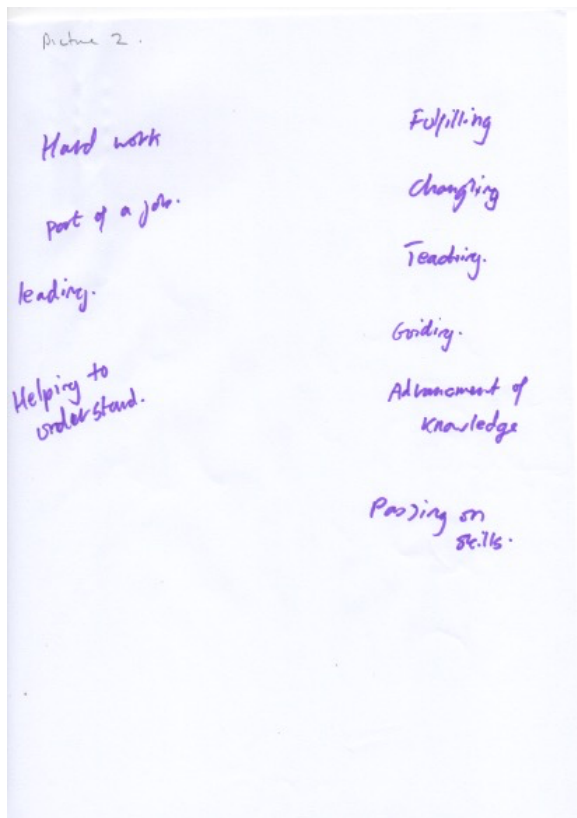 Picture 2.
Hard work
part of a job.
leading.
Helping to
understand.
Fulfilling
Changing
Teaching.
Guiding.
Advancement of
knowledge
Passing on
skills.